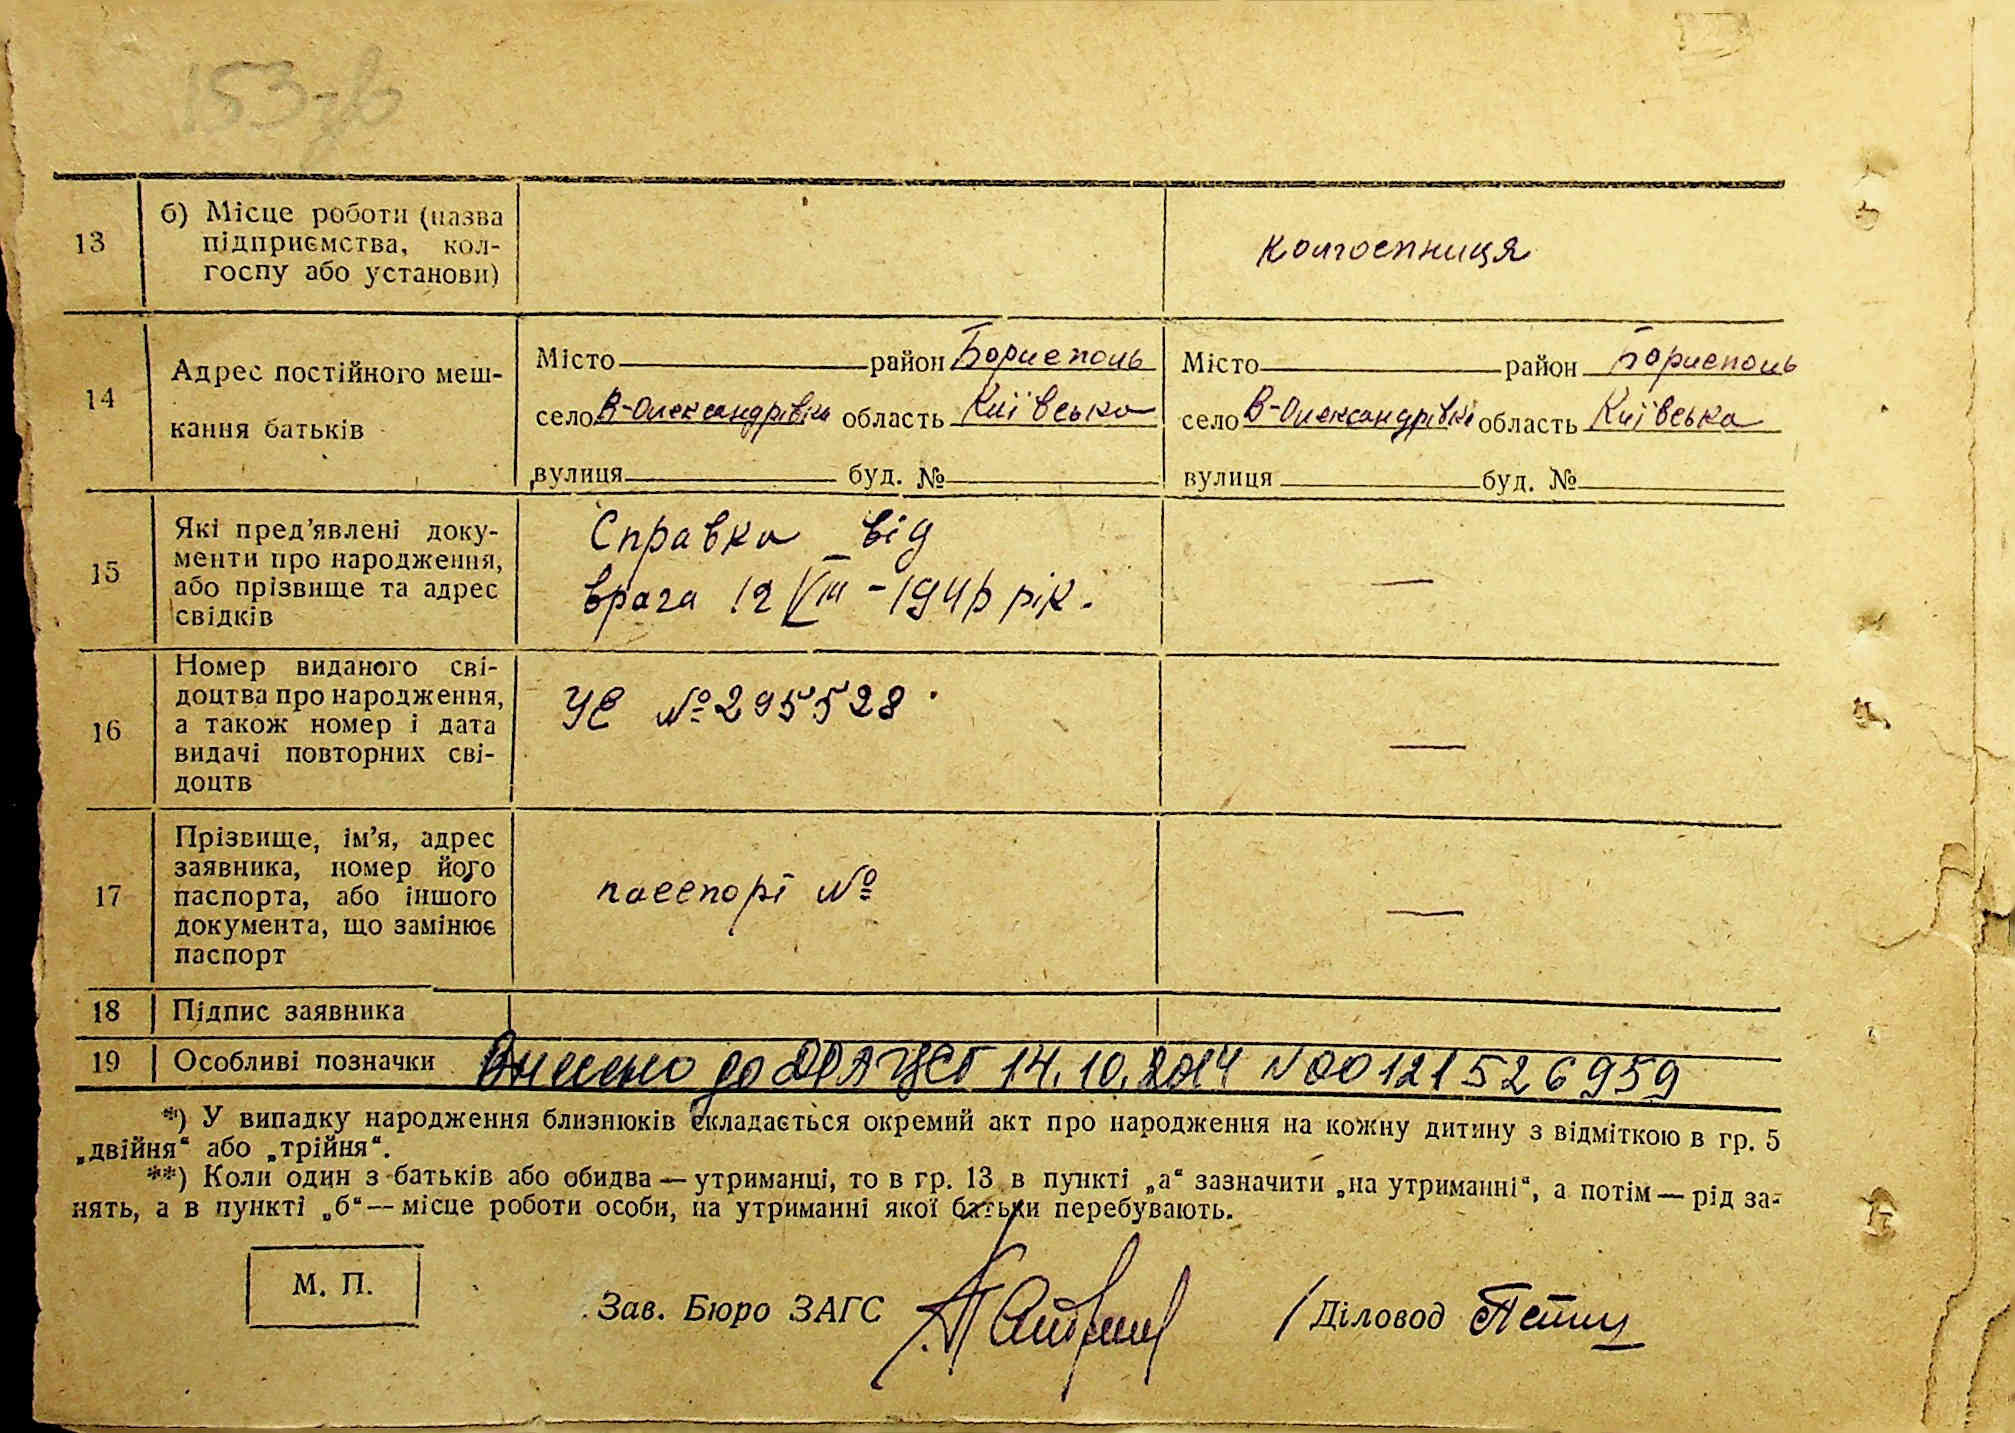 153 зв
13
б) Місце роботи (назва
підприємства, кол-
госпу або установи)
колгоспниця
14
Адрес постійного меш-
кання батьків
Місто район Борисполь
село В-Олександрівка область Київська
вулиця буд. №
Місто район Борисполь
село В-Олександрівка область Київська
вулиця буд. №
15
Які пред’явлені доку-
менти про народження,
або прізвище та адрес
свідків
Справка від
врага 12 VIII - рік.
—
16
Номер виданого сві-
доцтва про народження,
а також номер і дата
видачі повторних сві-
доцтв
УЄ № 295528
—
17
Прізвище, ім’я, адрес
заявника, номер його
паспорта, або іншого
документа, що замінює
паспорт
паспорт №
—
18
Підпис заявника
19
Особливі позначки
Внесено до ДРАЦСГ 14.10.2014 №00121526959
*) У випадку народження близнюків складається окремий акт про народження на кожну дитину з відміткою в гр. 5
„двійня“ або „трійня“.
**) Коли один з батьків або обидва — утриманці, то в гр. 13 в пункті „а“ зазначити „на утриманні“, а потім — рід за-
нять, а в пункті „б“ — місце роботи особи, на утриманні якої батьки перебувають.
М. П.
Зав. Бюро ЗАГС
Діловод